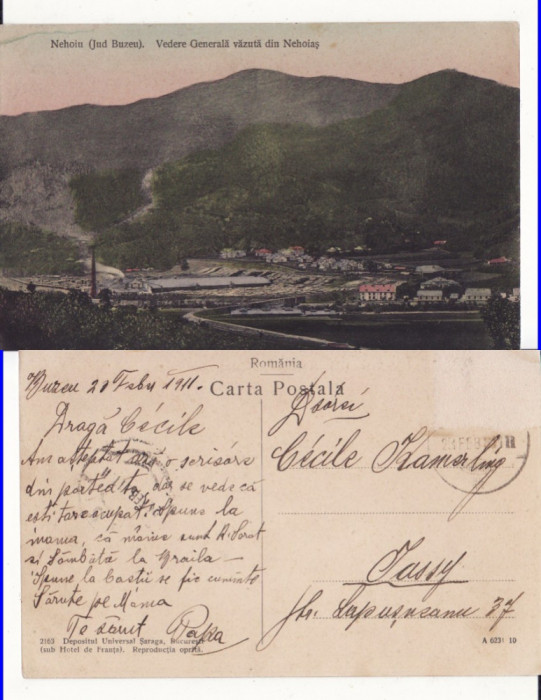 Nehoiu (Jud Buzeu). Vedere Generală văzută din Nehoiaș
România
Carta Postală
Buzeu 20 Febr 1911.
Dragă Cécile
Am așteptat o scrisore
din partea ta, se vede că
ești tare ocupată. Spune la
mama, că mâine sunt R. Sarat
si Sâmbătă la Braila –
Spune la să fie cuminte
Sărută pe Mama
Te sărut Papa
Cécile Kamerling
Jassy
Str. Lapușneanu 37
2163 Depositul Universal Șaraga, București
(sub Hotel de Franța). Reproducția oprită.
A 6231 10